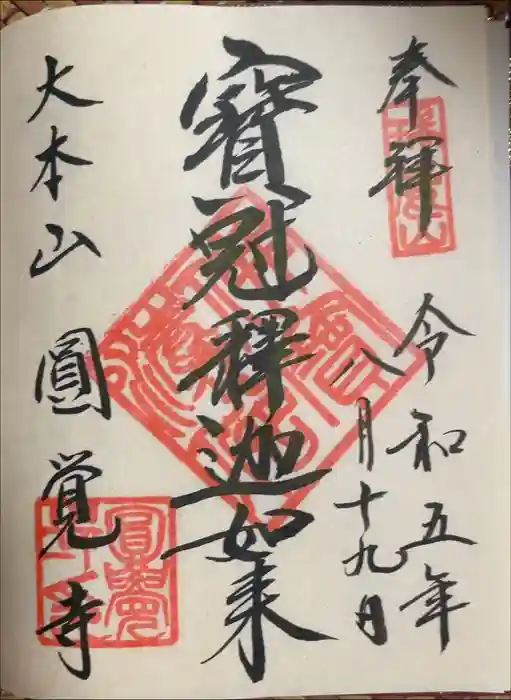 奉拜
令和五年
八月十九日
寶冠釋迦如来
大本山 圓覺寺